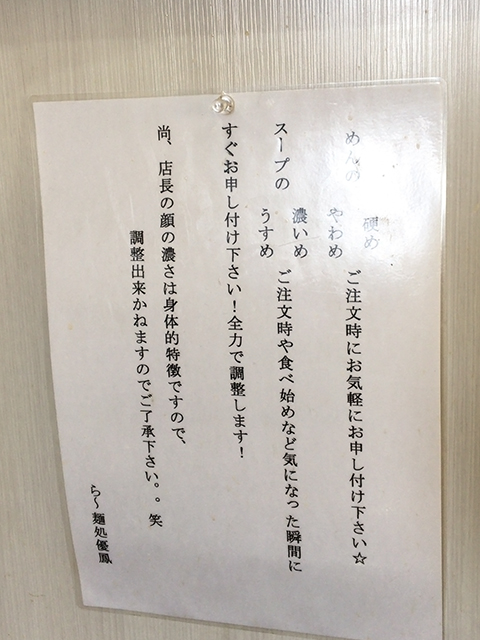 めんの 硬め
やわめ ご注文時にお気軽にお申し付け下さい☆
スープの 濃いめ
うすめ ご注文時や食べ始めなど気になった瞬間に
すぐお申し付け下さい！全力で調整します！
尚、店長の顔の濃さは身体的特徴ですので、
調整出来かねますのでご了承下さい。。笑
ら〜麺処優鳳